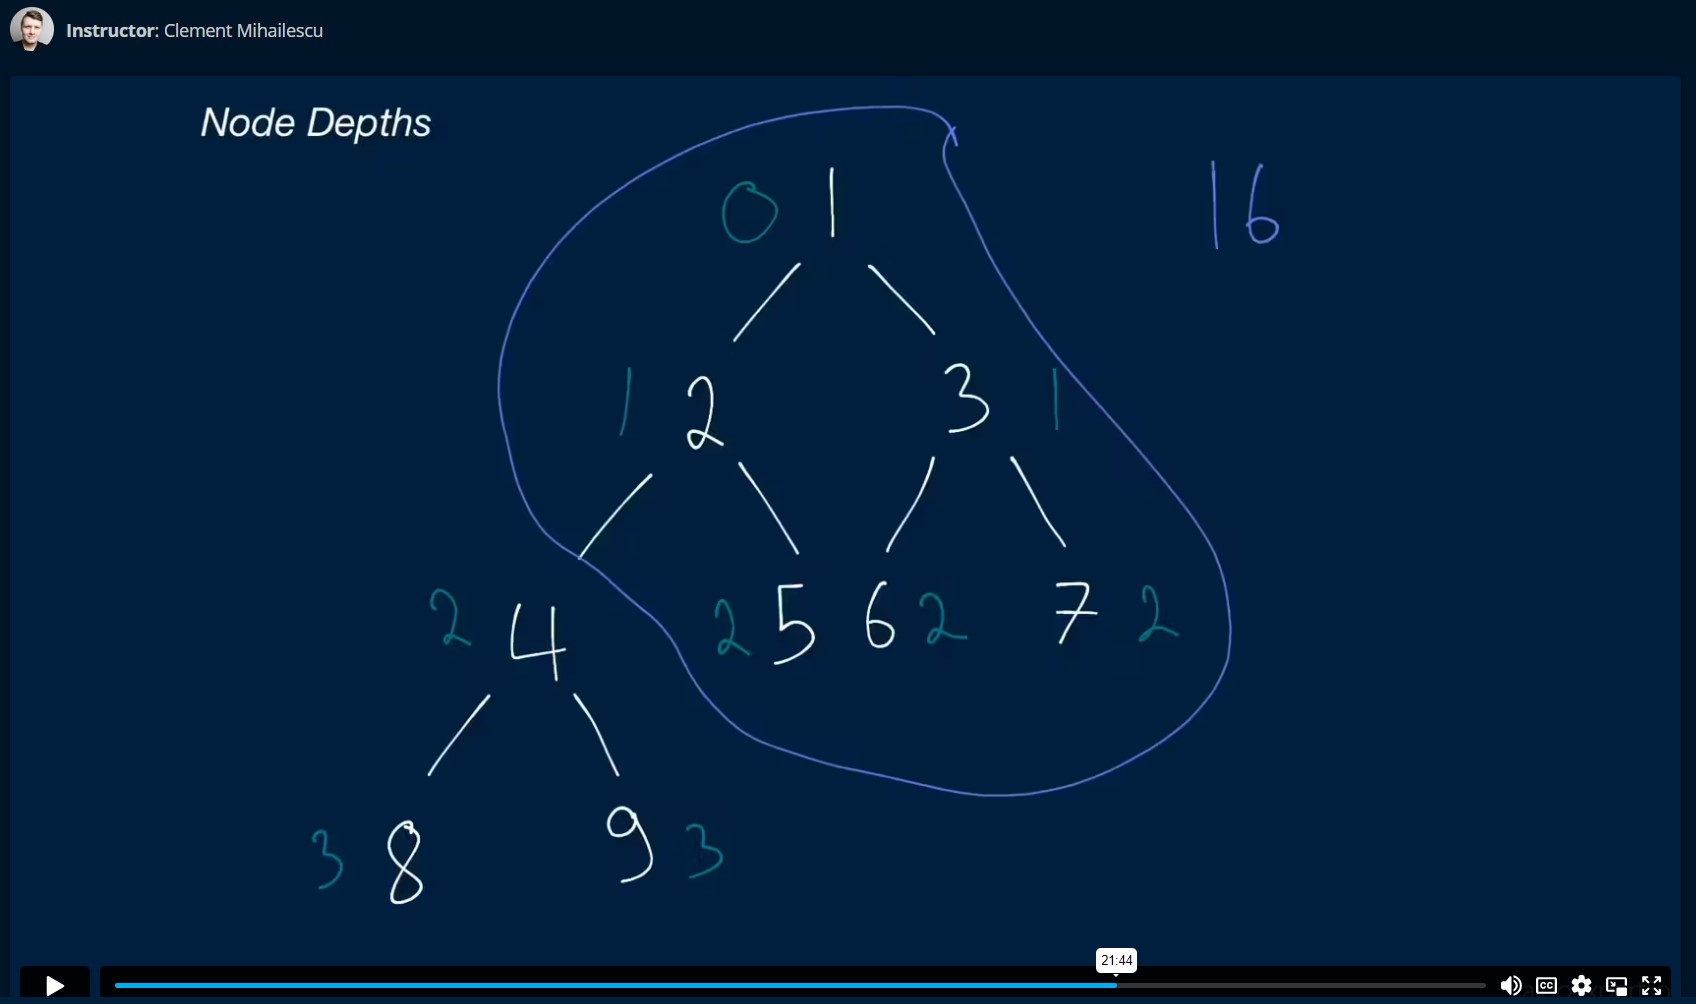 Instructor: Clement Mihailescu
Node Depths
0 1
16
1 2 3 1
2 4 2 5 6 2 7 2
3 8 9 3
21:44
CC